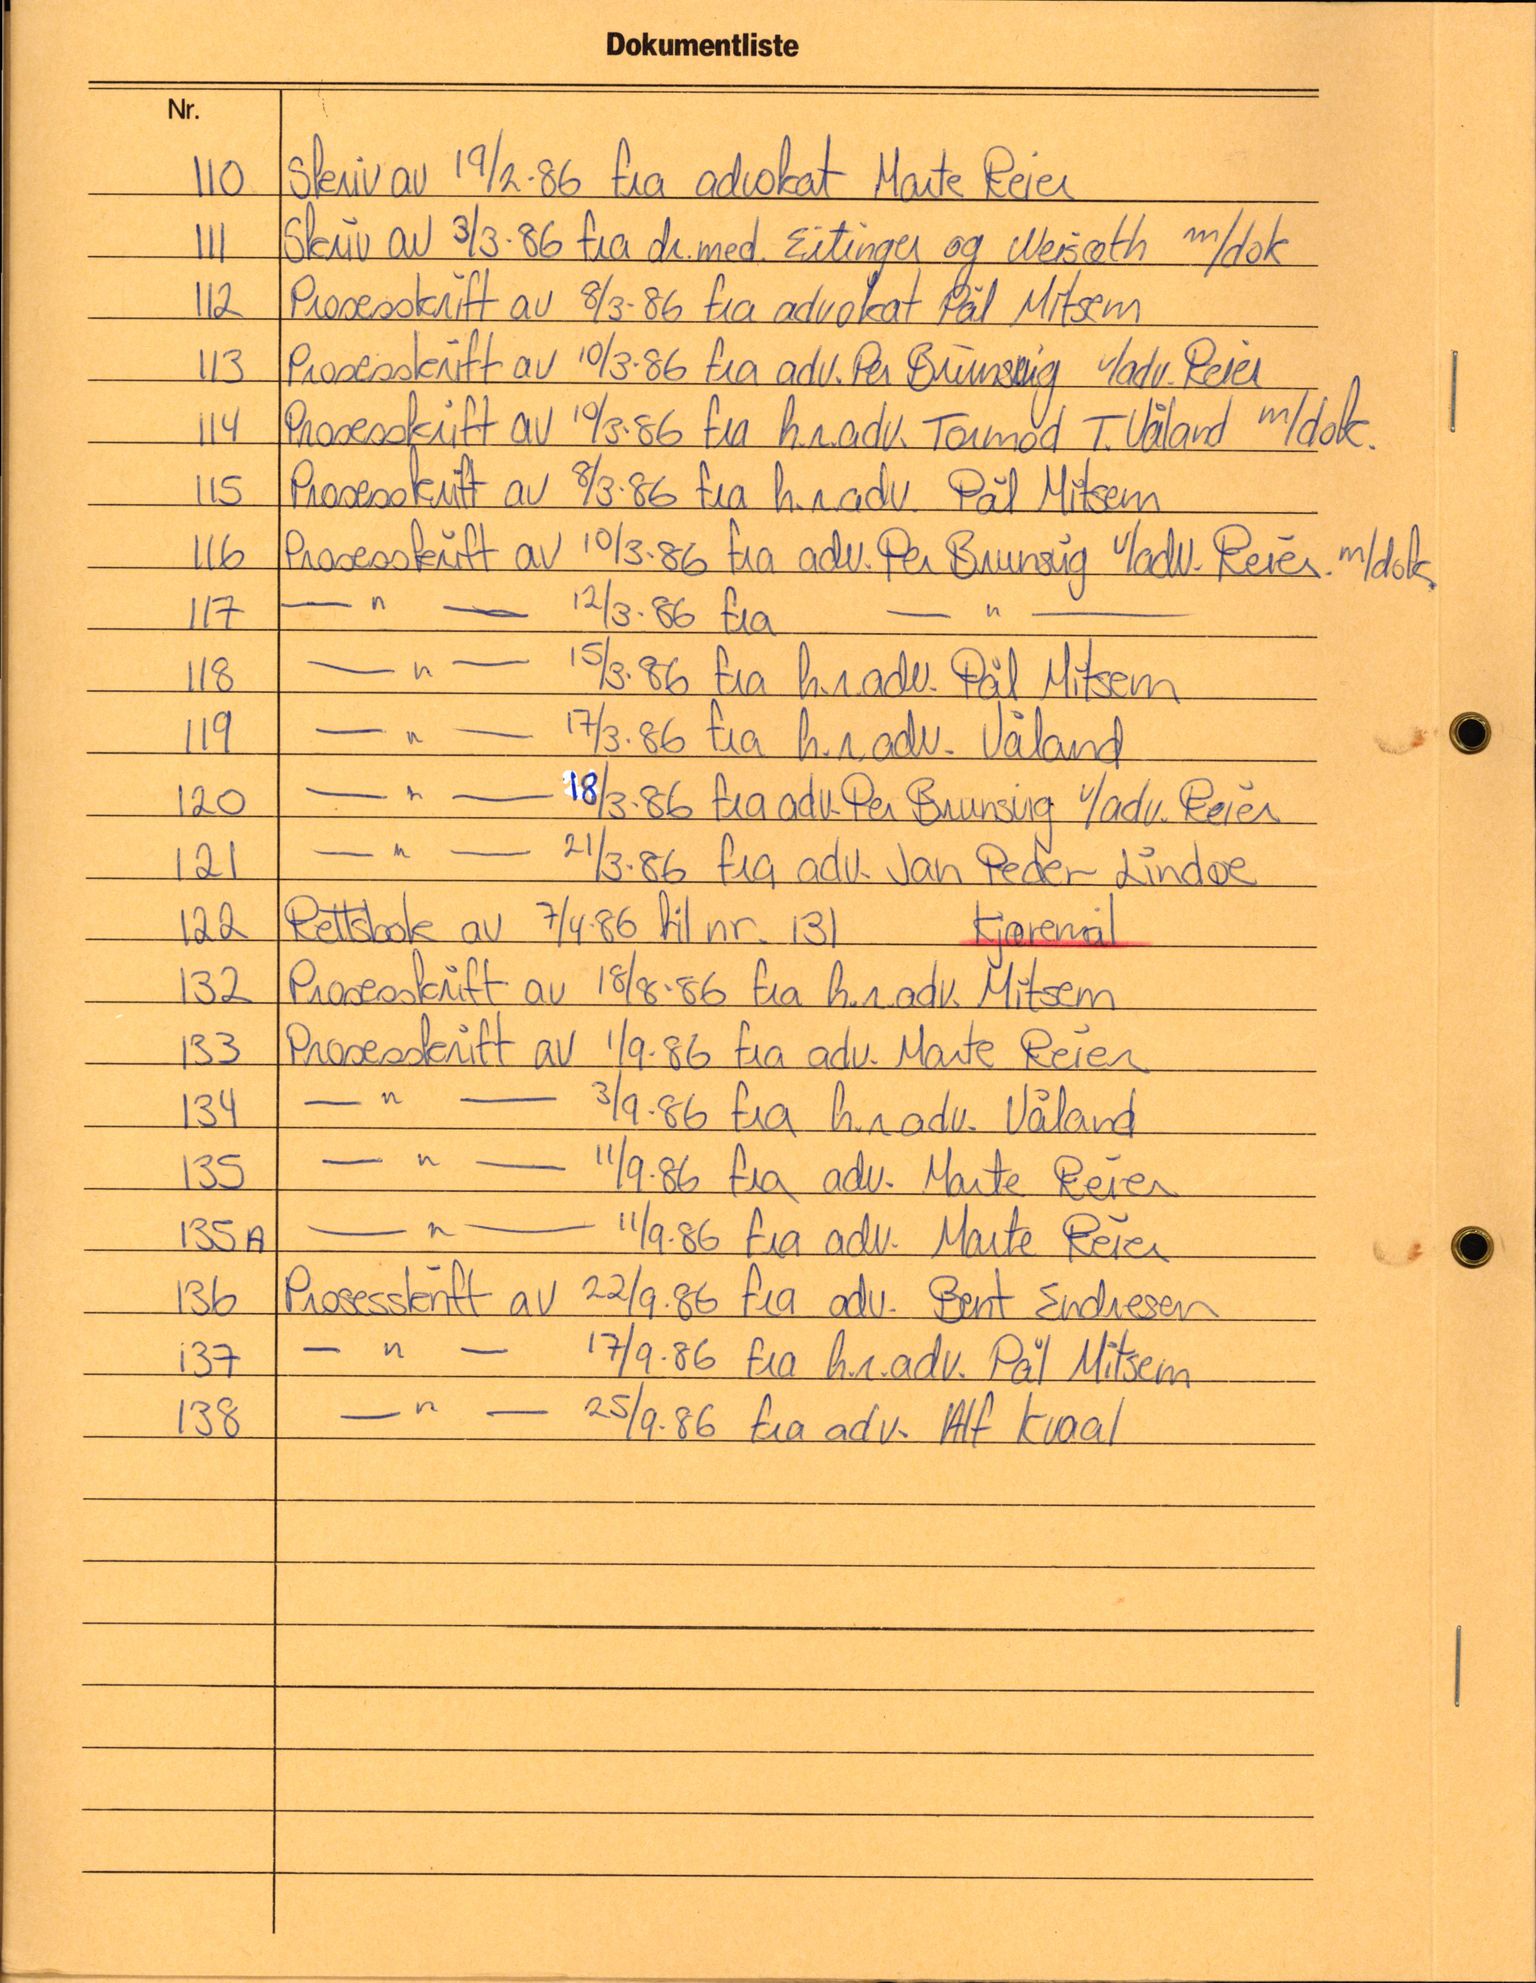 Dokumentliste
Nr.
110 Skriv av 19/2-86 fra advokat Marte Reier
111 Skriv av 3/3-86 fra dr.med. Eitinger og Weisæth m/dok
112 Prosesskrift av 8/3-86 fra advokat Pål Mitsem
113 Prosesskrift av 10/3-86 fra adv. Per Brunsvig v/adv. Reier
114 Prosesskrift av 10/3-86 fra h.r.adv. Tormod T. Våland m/dok.
115 Prosesskrift av 8/3-86 fra h.r.adv. Pål Mitsem
116 Prosesskrift av 10/3-86 fra adv. Per Brunsvig v/adv. Reier. m/dok.
117 — " — 12/3-86 fra — " —
118 — " — 15/3-86 fra h.r.adv. Pål Mitsem
119 — " — 17/3-86 fra h.r.adv. Våland
120 — " — 18/3-86 fra adv. Per Brunsvig v/adv. Reier
121 — " — 21/3-86 fra adv. Jan Peder Lindøe
122 Rettsbok av 7/4-86 til nr. 131 Kjæremål
132 Prosesskrift av 18/8-86 fra h.r.adv. Mitsem
133 Prosesskrift av 1/9-86 fra adv. Marte Reier
134 — " — 3/9-86 fra h.r.adv. Våland
135 — " — 11/9-86 fra adv. Marte Reier
135A — " — 11/9-86 fra adv. Marte Reier
136 Prosesskrift av 22/9-86 fra adv. Bent Endresen
137 — " — 17/9-86 fra h.r.adv. Pål Mitsem
138 — " — 25/9-86 fra adv. Alf Kvaal